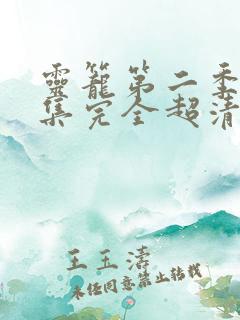 靈籠第二季
集完全超清
王玉濤
未经同意禁止转载